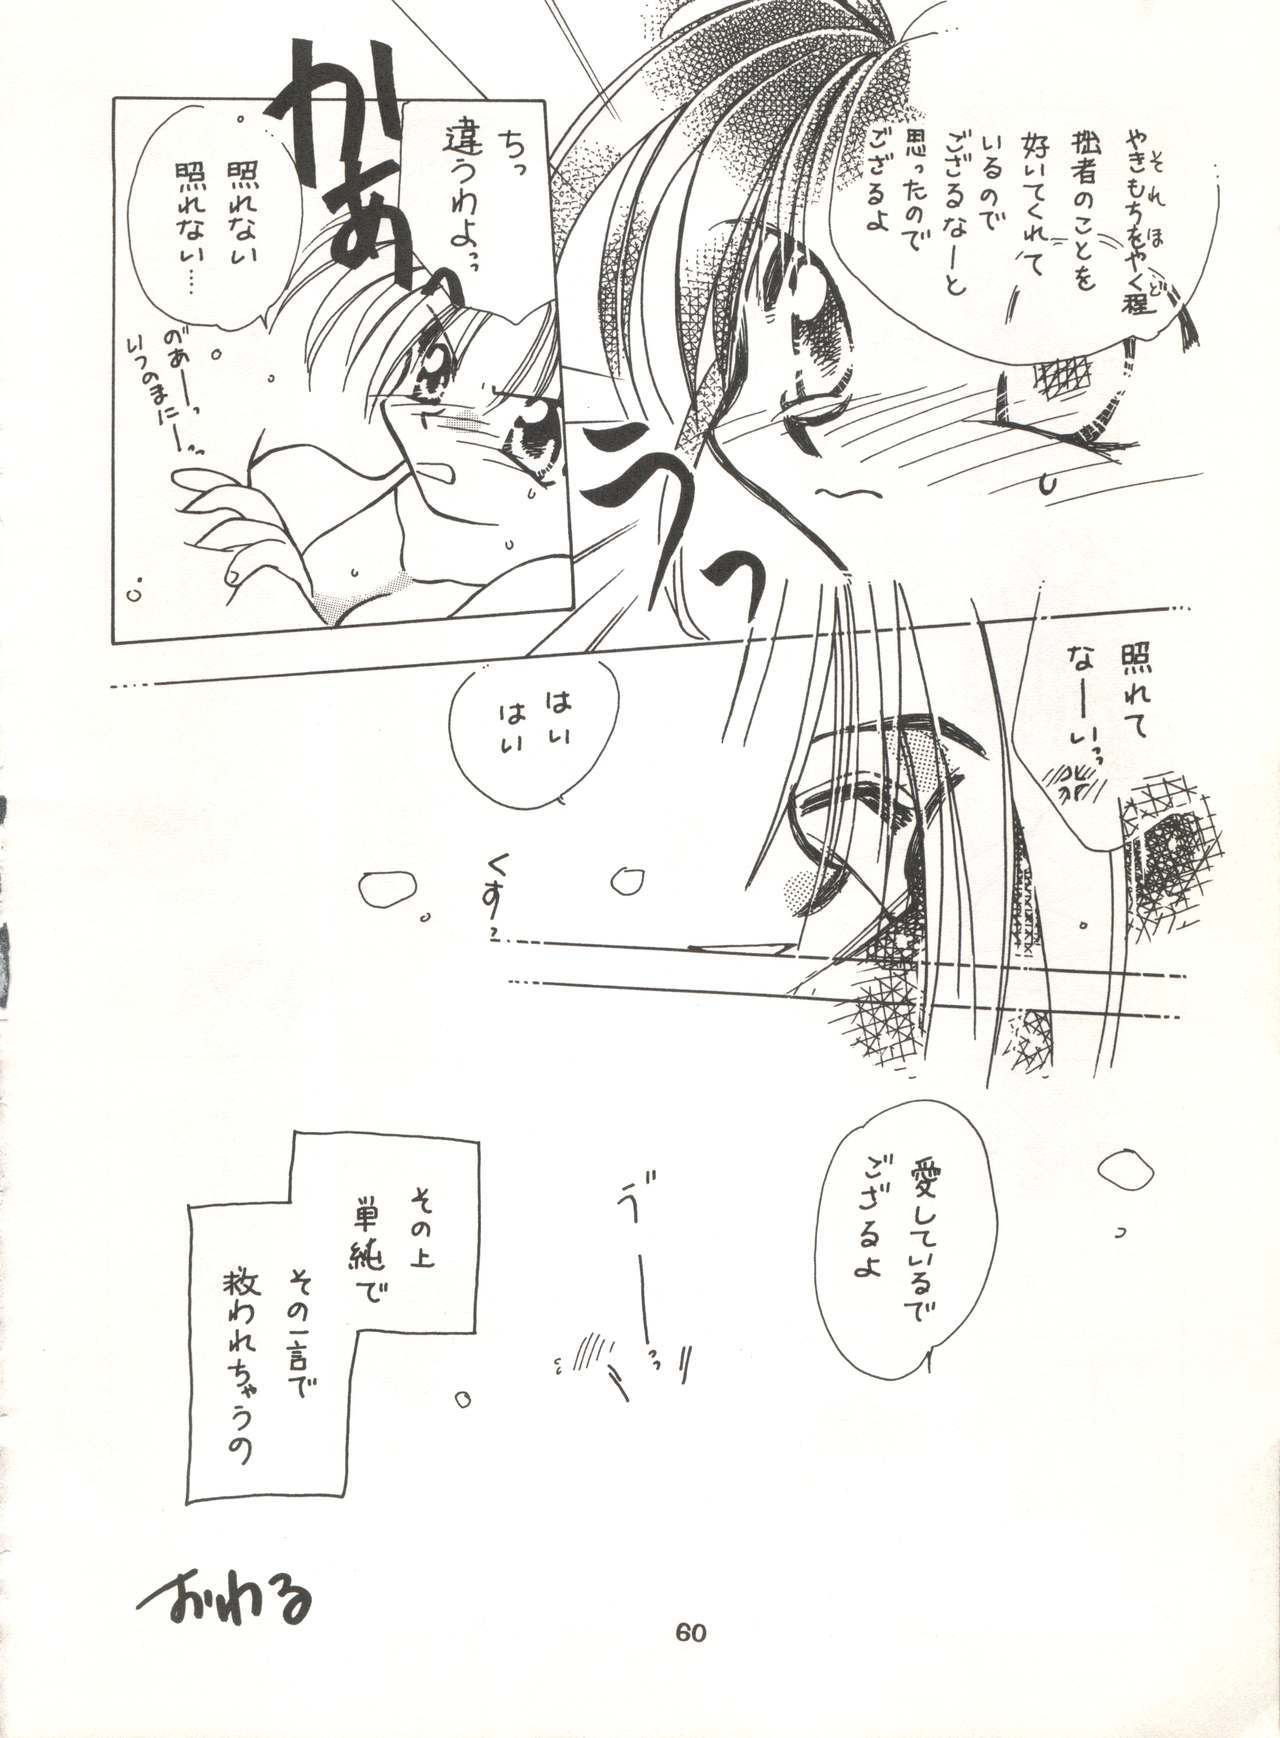 やきもちをやく程
それほど
拙者のことを
好いてくれて
いるので
ござるなーと
思ったので
ござるよ
うっ
ちっ
違うわよっっ
かあぁ
照れない
照れない…
のぁーーっ
いつのまにーっっ
照れて
なーいっっ
はい
はい
くすっ
愛しているで
ござるよ
ゔーーっっ
その上
単純で
その一言で
救われちゃうの
おわる
60